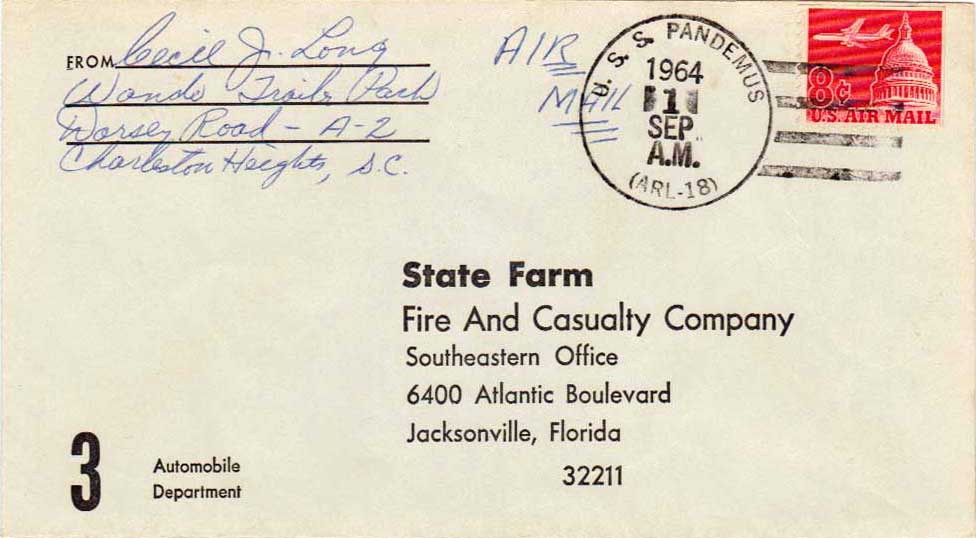 FROM Cecil J. Long
Wando Trailer Park
Dorsey Road - A-2
Charleston Heights, S.C.
AIR
MAIL
U. S. S. PANDEMUS
1964
1
SEP
A.M.
(ARL-18)
8¢
U.S. AIR MAIL
State Farm
Fire And Casualty Company
Southeastern Office
6400 Atlantic Boulevard
Jacksonville, Florida
32211
3
Automobile
Department